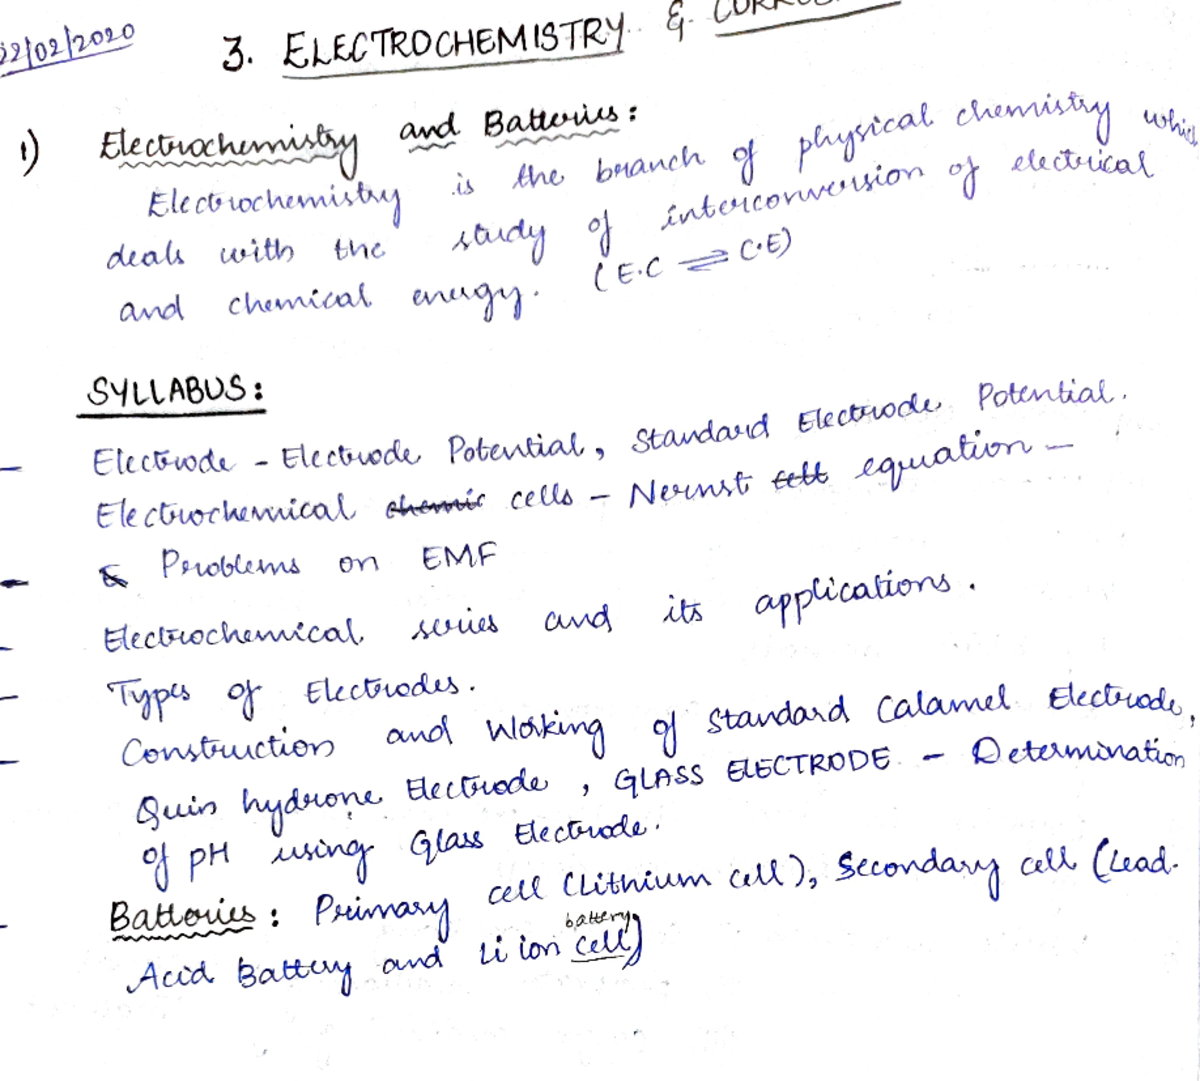 22/02/2020
3. ELECTROCHEMISTRY &
1) Electrochemistry and Batteries :
Electrochemistry is the branch of physical chemistry which
deals with the study of interconversion of electrical
and chemical energy. (E.C ⇌ C.E)
SYLLABUS :
- Electrode - Electrode Potential, Standard Electrode Potential.
Electrochemical chemic cells - Nernst cell equation -
- & Problems on EMF
- Electrochemical series and its applications.
- Types of Electrodes.
- Construction and Working of Standard Calamel Electrode,
Quin hydrone Electrode, GLASS ELECTRODE - Determination
of pH using Glass Electrode.
- Batteries : Primary cell (Lithium cell), Secondary cell (Lead-
Acid Battery and Li ion cell) battery